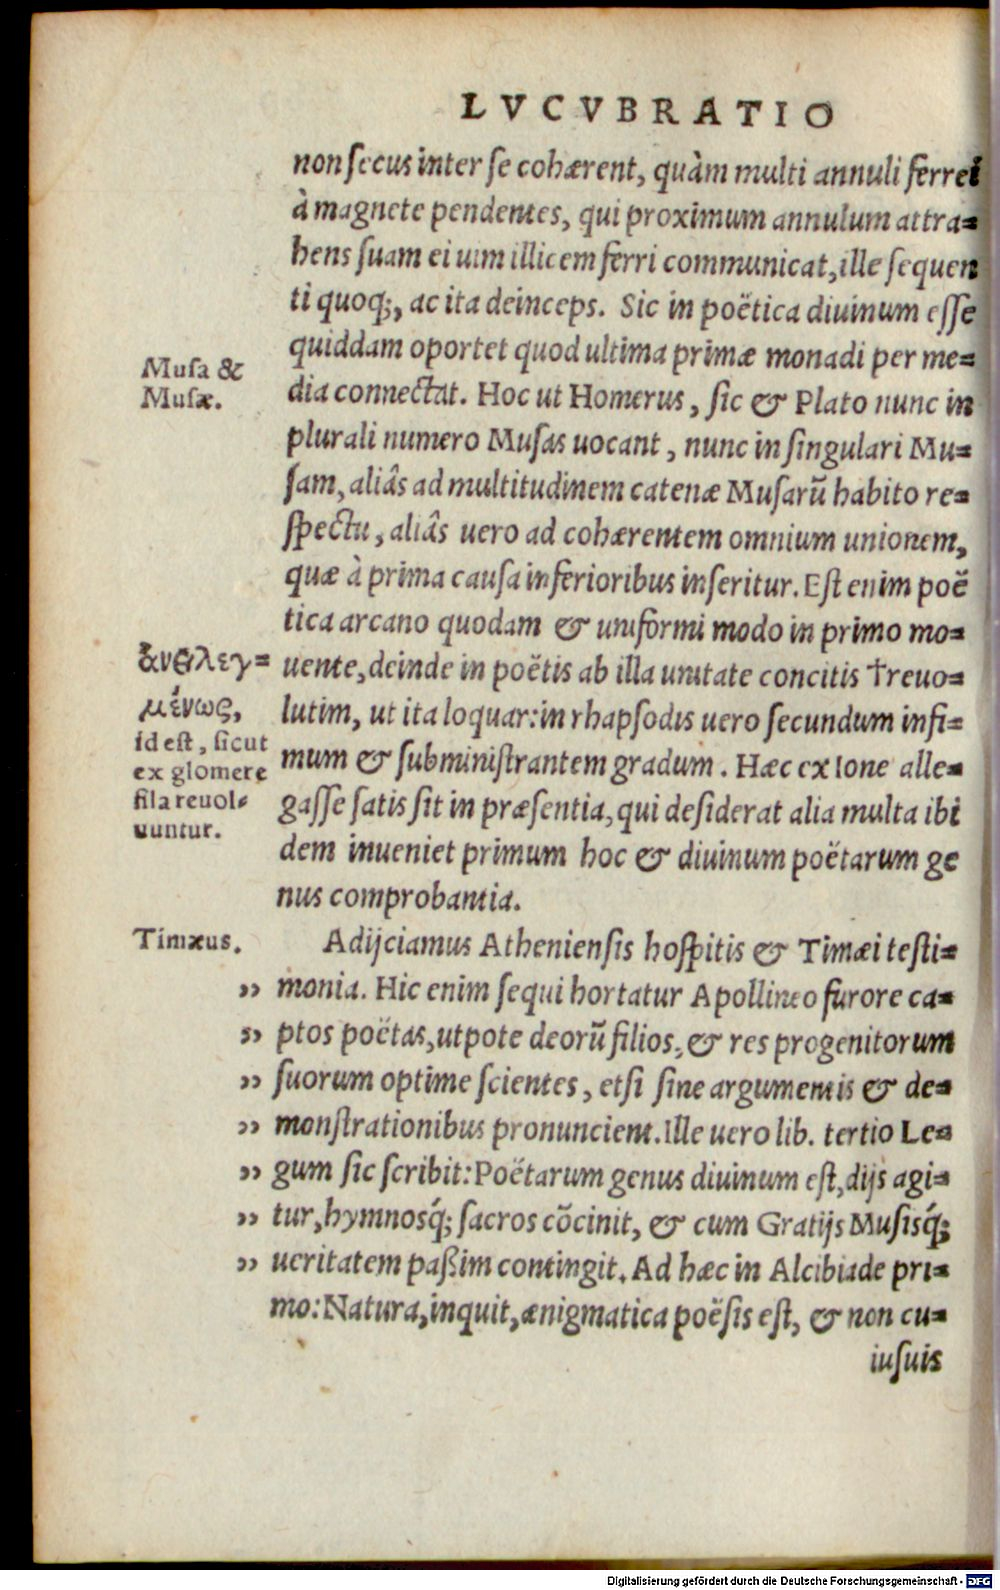 LVCVBRATIO
non secus inter se cohærent, quàm multi annuli ferrei
à magnete pendentes, qui proximum annulum attra=
hens suam ei uim illicem ferri communicat, ille sequen
ti quoq;, ac ita deinceps. Sic in poëtica diuinum esse
quiddam oportet quod ultima primæ monadi per me=
dia connectat. Hoc ut Homerus, sic & Plato nunc in
plurali numero Musas uocant, nunc in singulari Mu=
sam, aliâs ad multitudinem catenæ Musarũ habito re=
spectu, aliâs uero ad cohærentem omnium unionem,
quæ à prima causa inferioribus inseritur. Est enim poë
tica arcano quodam & uniformi modo in primo mo=
uente, deinde in poëtis ab illa unitate concitis †reuo=
lutim, ut ita loquar: in rhapsodis uero secundum infi=
mum & subministrantem gradum. Hæc ex Ione alle=
gasse satis sit in præsentia, qui desiderat alia multa ibi
dem inueniet primum hoc & diuinum poëtarum ge
nus comprobantia.
Musa &
Musæ.
ἀνελεγ=
μένως,
id est, sicut
ex glomere
fila reuol=
uuntur.
Timæus.
Adijciamus Atheniensis hospitis & Timæi testi=
,, monia. Hic enim sequi hortatur Apollineo furore ca=
,, ptos poëtas, utpote deorũ filios, & res progenitorum
,, suorum optime scientes, etsi sine argumentis & de=
,, monstrationibus pronuncient. Ille uero lib. tertio Le=
,, gum sic scribit: Poëtarum genus diuinum est, dijs agi=
,, tur, hymnosq́; sacros cõcinit, & cum Gratijs Musisq́;
,, ueritatem paßim contingit. Ad hæc in Alcibiade pri=
mo: Natura, inquit, ænigmatica poësis est, & non cu=
iusuis
Digitalisierung gefördert durch die Deutsche Forschungsgemeinschaft - DFG